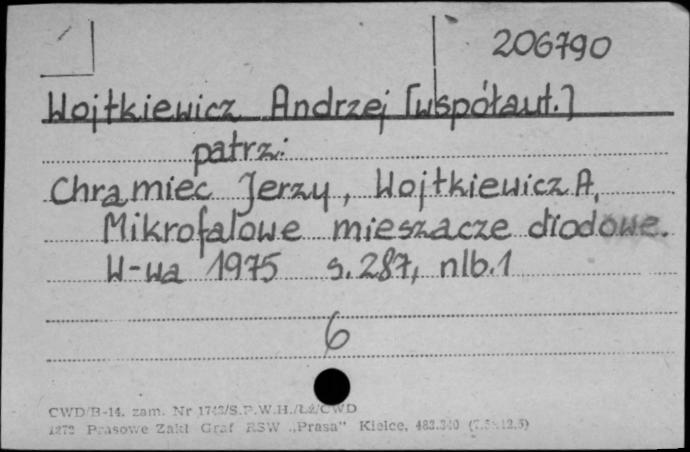 206790
Wojtkiewicz Andrzej [współaut.]
patrz:
Chramiec Jerzy, Wojtkiewicz A.
Mikrofalowe mieszacze diodowe.
W-wa 1975 s. 287, nlb.1
6
CWD/B-14. zam. Nr 1742/S.P.W.H./Łź/CWD
1272 Prasowe Zakł Graf RSW „Prasa" Kielce, 483.340 (7.5×12.5)